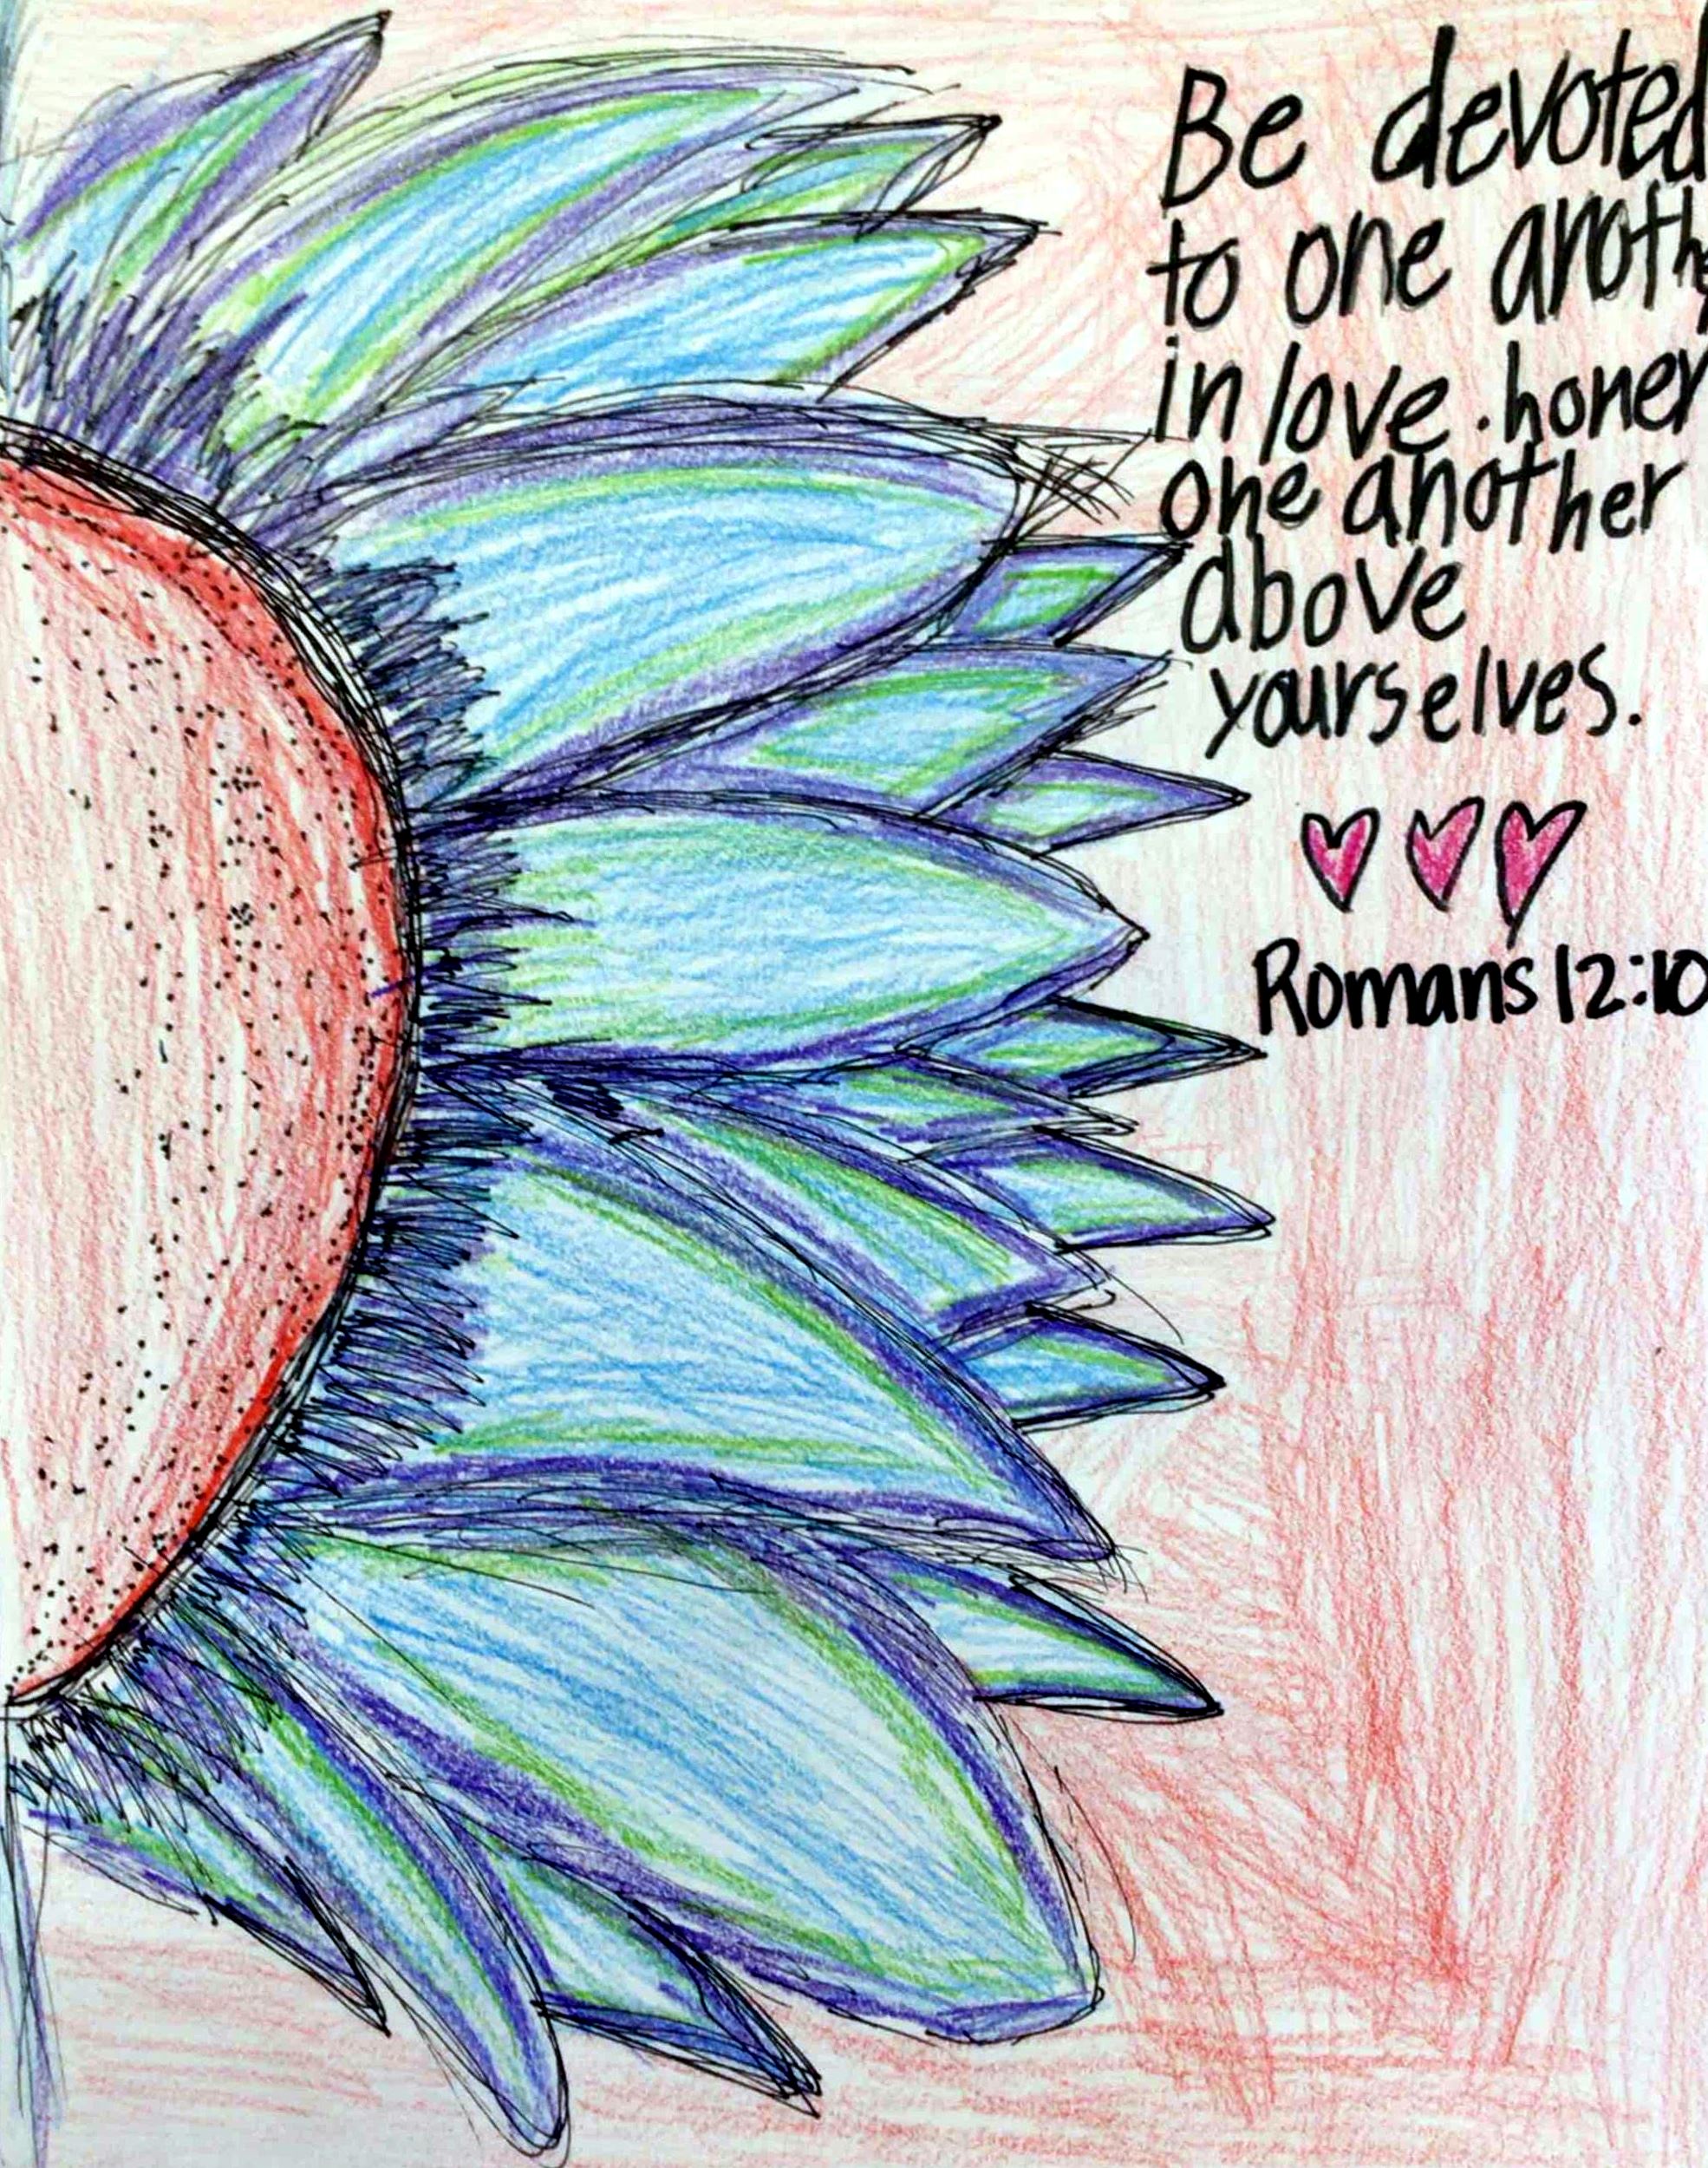 Be devoted
to one anothe
in love. honer
one another
above
yourselves.
Romans 12:10